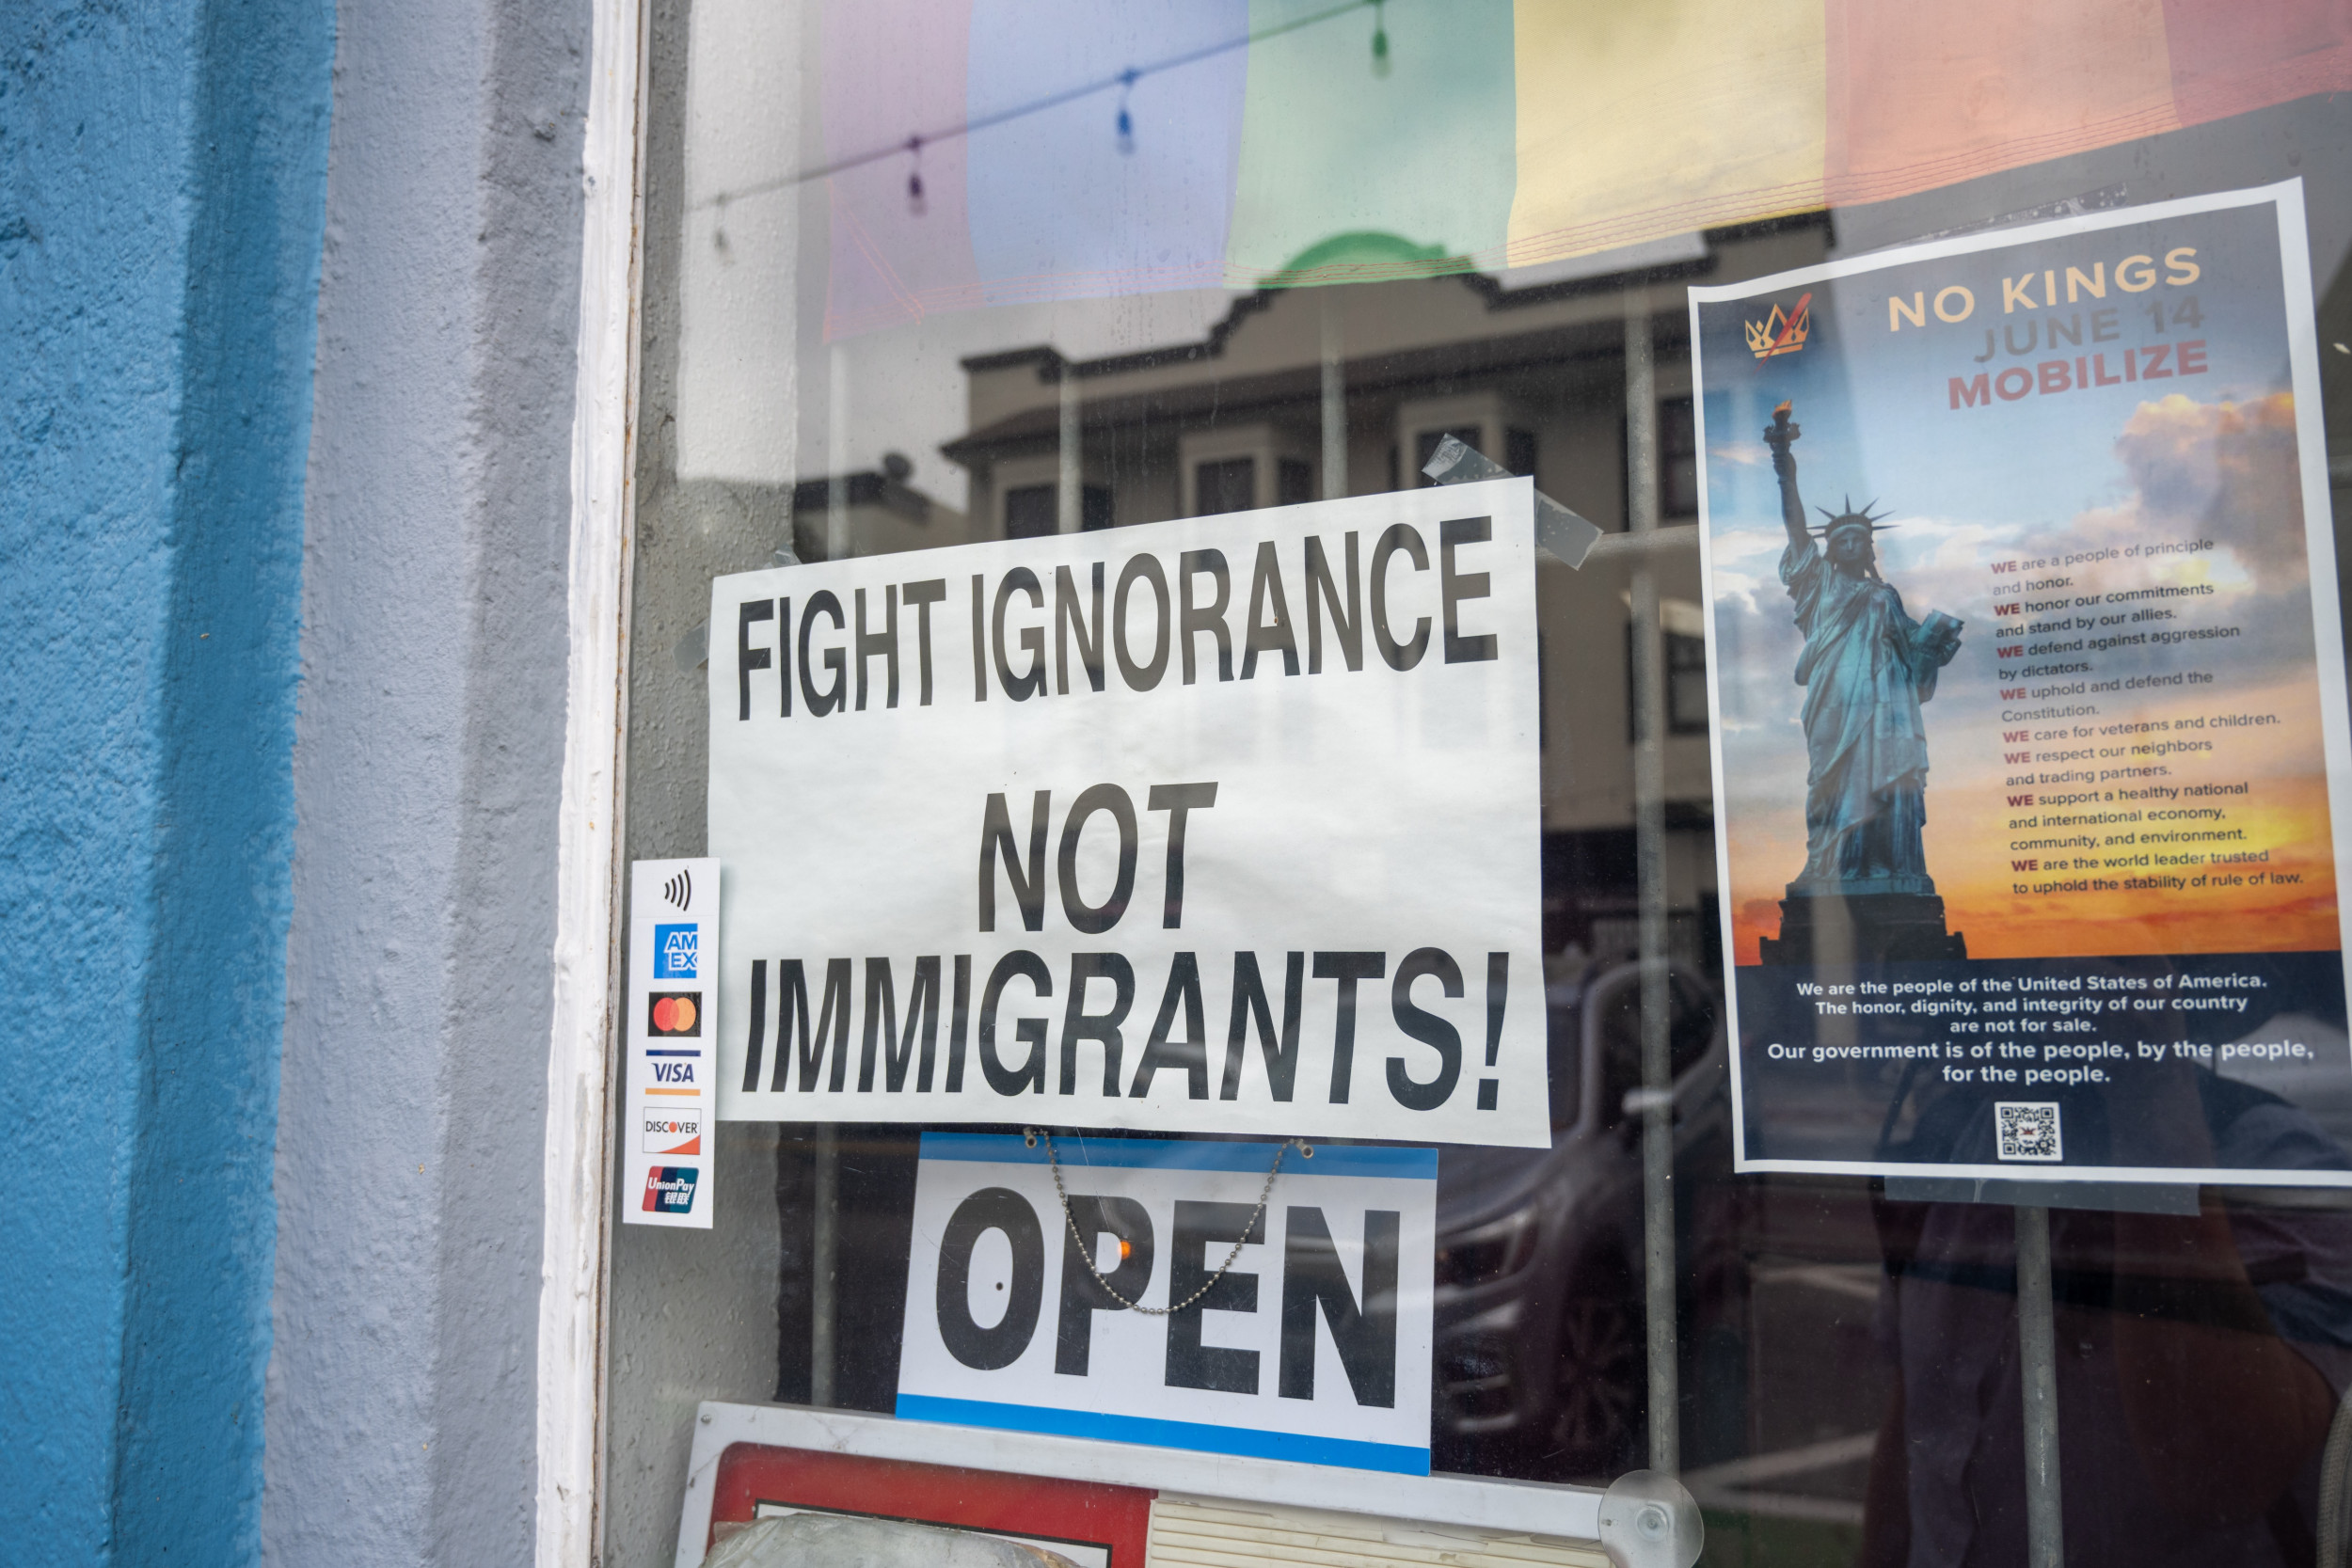 FIGHT IGNORANCE
NOT
IMMIGRANTS!
AM
EX
VISA
DISCOVER
UnionPay
银联
OPEN
NO KINGS
JUNE 14
MOBILIZE
WE are a people of principle
and honor.
WE honor our commitments
and stand by our allies.
WE defend against aggression
by dictators.
WE uphold and defend the
Constitution.
WE care for veterans and children.
WE respect our neighbors
and trading partners.
WE support a healthy national
and international economy,
community, and environment.
WE are the world leader trusted
to uphold the stability of rule of law.
We are the people of the United States of America.
The honor, dignity, and integrity of our country
are not for sale.
Our government is of the people, by the people,
for the people.